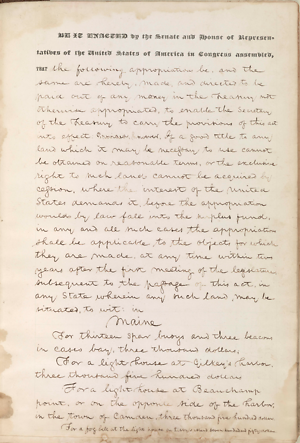 BE IT ENACTED by the Senate and House of Represen-
tatives of the United States of America in Congress assembled,
THAT the following appropriation be, and the
same are hereby, made and directed to be
paid out of any money in the Treasury not
otherwise appropriated, to enable the Secretary
of the Treasury to carry the provisions of this act
into effect: Provided however, if a good title to any
land which it may be necessary to use cannot
be obtained on reasonable terms, or the exclusive
right to such land cannot be acquired by
cession, where the interest of the United
States demands it, before the appropriation
would by law fall into the surplus fund,
in any and all such cases the appropriation
shall be applicable to the objects for which
they are made, at any time within two
years after the first meeting of the legislature
subsequent to the passage of this act, in
any State wherein any such land may be
situated, to wit: in
Maine
For thirteen spar buoys and three beacons
in casco bay, three thousand dollars,
For a light house at Gilkey's harbor,
three thousand five hundred dollars
For a light house at Beauchamp
point, or on the opposite side of the harbor,
in the town of Camden, three thousand five hundred dollars
For a fog bell at the light house on